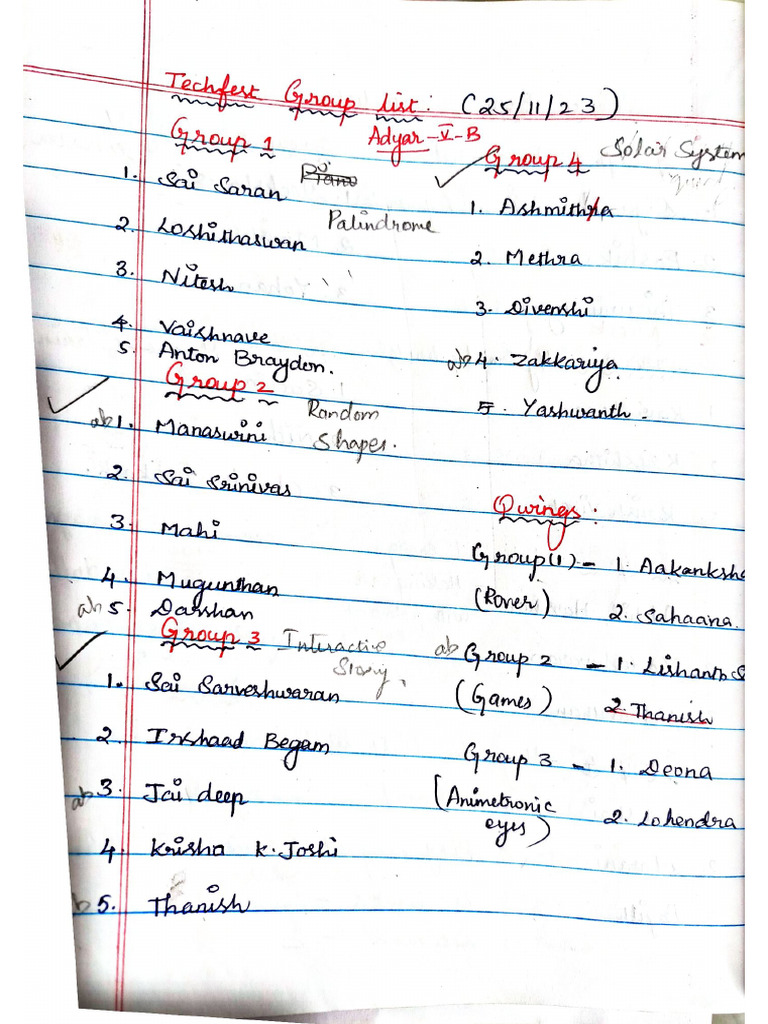 Techfest Group list: (25/11/23)
Adyar-V-B
Group 1
1. Sai Saran
Palindrome
2. Loshithaswan
3. Nitesh
4. Vaishnave
5. Anton Braydon.
Group 2
Random
Shapes.
ab 1. Manaswini
2. Sai Srinivas
3. Mahi
4. Mugunthan
ab 5. Darshan
Group 3 Interactive
Story,
1. Sai Sarveshwaran
2. Irshaad Begam
ab 3. Jai deep
4. Krisha K. Joshi
b 5. Thanish
Group 4 Solar System
1. Ashmithra
2. Methra
3. Divenshi
ab 4. Zakkariya.
5. Yashwanth.
Qwings:
Group(1) - 1. Aakanksha
(Rover) 2. Sahaana.
ab Group 2 - 1. Lishanth S
(Games) 2. Thanish
Group 3 - 1. Deona
(Animetronic 2. Lohendra
eyes)